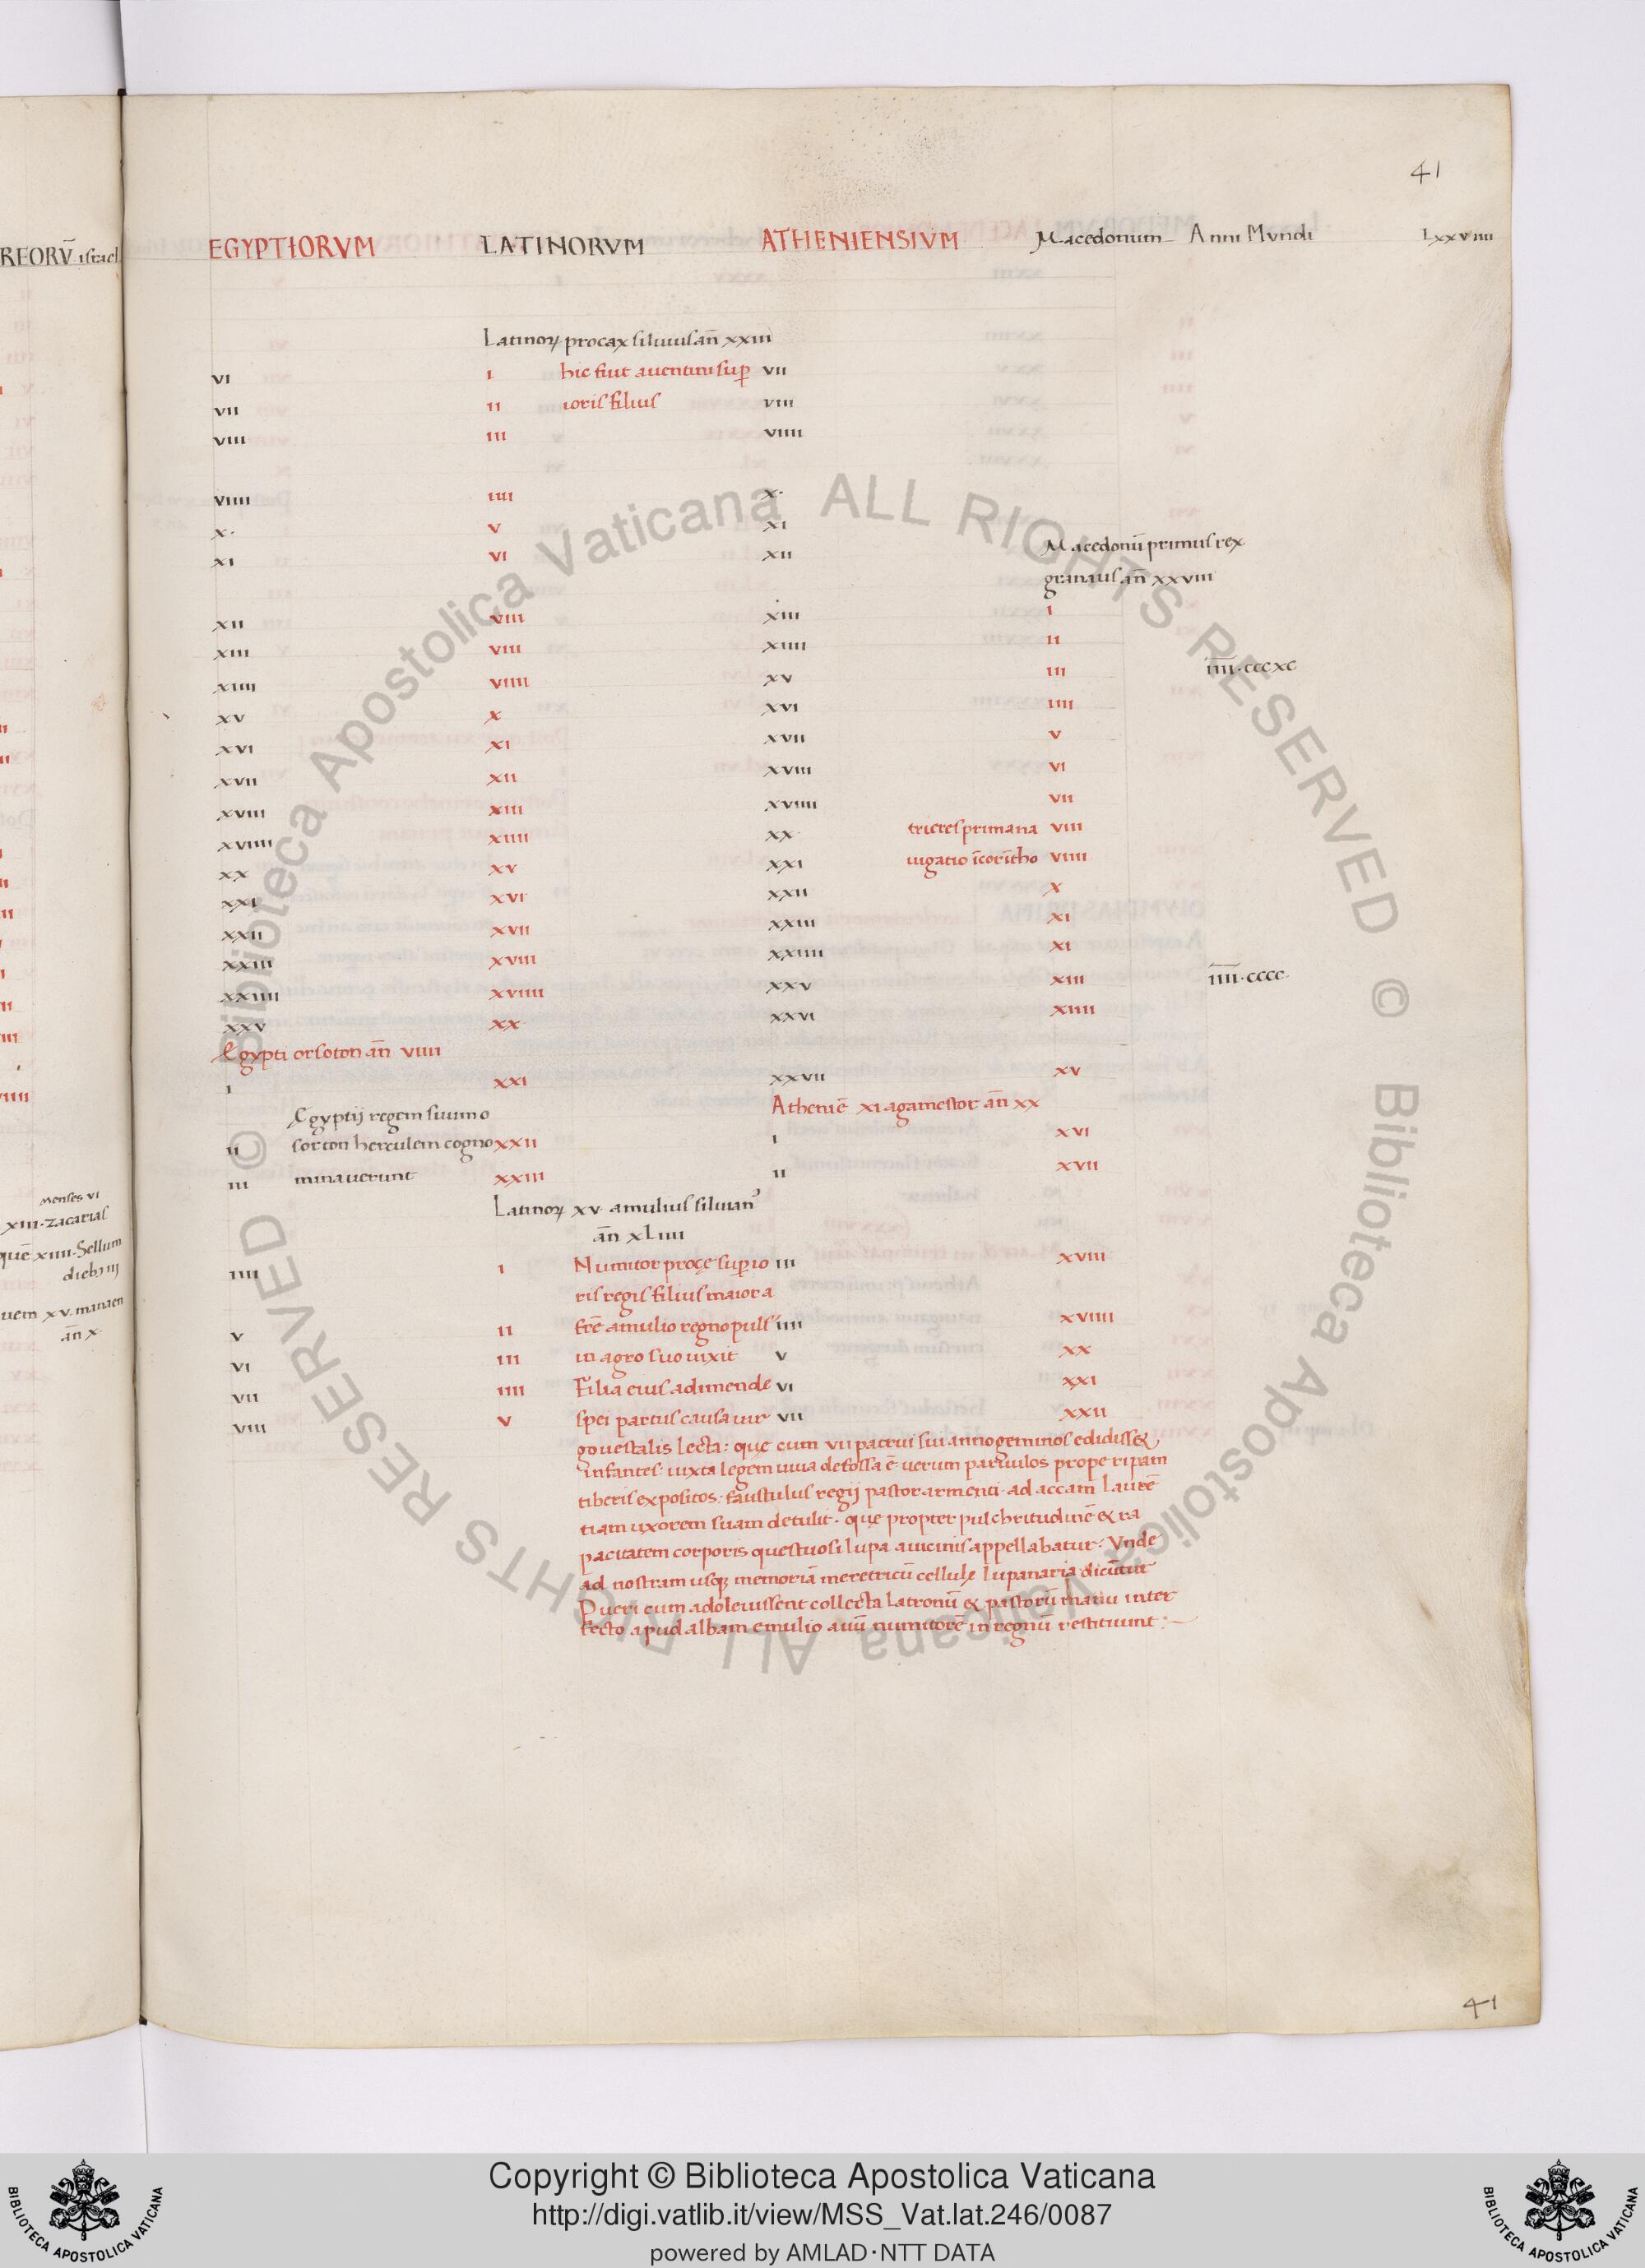 41
REORV̄ israel
EGYPTIORVM LATINORVM ATHENIENSIVM Macedonum Anni Mvndi Lxxviiii
Latinoꝝ procax siluius an̄ xxiii
vi i hic fuit auentini suꝑ vii
vii ii ioris filius viii
viii iii viiii
viiii iiii x·
x· v xi
xi vi xii Macedonū primus rex
granaus an̄ xxviii
xii viii xiii i
xiii viii xiiii ii
xiiii viiii xv iii īīīī·cccxc
xv x xvi iiii
xvi xi xvii v
xvii xii xviii vi
xviii xiii xviiii vii
xviiii xiiii xx trieres prima na viii
xx xv xxi uigatio ī corītho viiii
xxi xvi xxii x
xxii xvii xxiii xi
xxiii xviii xxiiii xi
xxiiii xviiii xxv xiii īīīī·cccc
xxv xx xxvi xiiii
Egypti orsoton an̄ viiii
i xxi xxvii xv
Egyptij regem suum o Atheniē xi agamestor an̄ xx
ii sorton herculem cogno xxii i xvi
iii minauerunt xxiii ii xvii
Latinoꝝ xv amulius siluian᾽
an̄ xLiiii
iiii i Numitor proçe suꝑio iii xviii
ris regis filius maior a
v ii frē amulio regno puls᾽ iiii xviiii
vi iii in agro suo uixit v xx
vii iiii Filia eius adimende vi xxi
viii v spei partus causa uir vii xxii
go uestalis lecta: quę cum vii patrui sui anno geminos edidiss&
infantes· iuxta legem uiua defossa ē· uerum paruulos prope ripam
tiberis expositos· faustulus regij pastor armenti· ad accam Laurē
tiam uxorem suam detulit· quę propter pulchritudinē & ra
pacitatem corporis questuosi lupa a uicinis appellabatur· Vnde
ad nostram usqꝫ memoriā meretricū cellulę Lupanaria dicūtur
Pueri cum adoleuissent collecta Latronū & pastorū manu inter
fecto apud albam emulio auū numitorē in regnū restituunt:
menses vi
xiii·zacarias
quē xiiii·Sellum
dieb; iij
uem xv·manaen
an̄ x·
41
© Biblioteca Apostolica Vaticana ALL RIGHTS RESERVED © Biblioteca Apostolica Vaticana ALL RIGHTS RESERVED
Copyright © Biblioteca Apostolica Vaticana
http://digi.vatlib.it/view/MSS_Vat.lat.246/0087
powered by AMLAD·NTT DATA
BIBLIOTECA APOSTOLICA VATICANA
BIBLIOTECA APOSTOLICA VATICANA